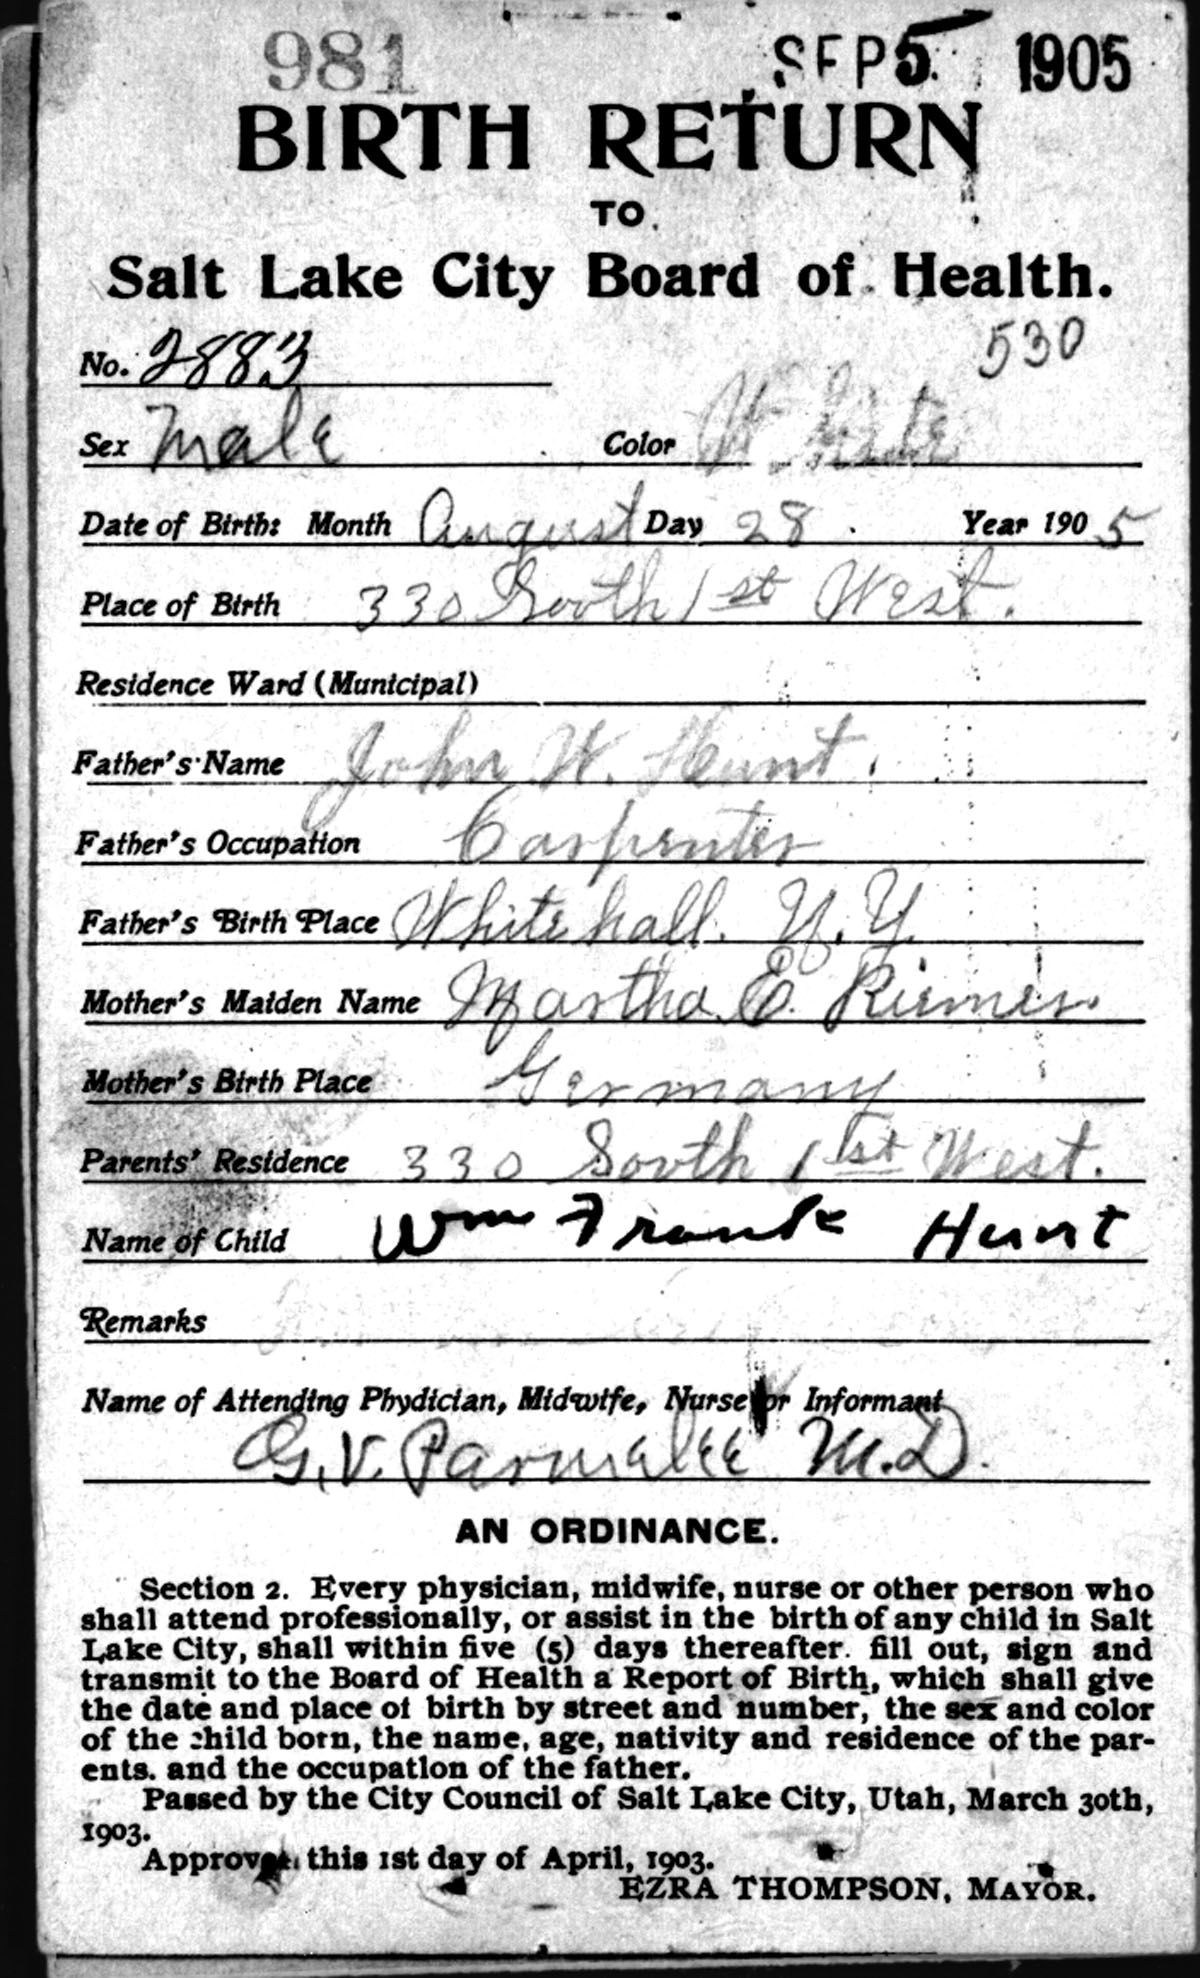 981 SEP 5 1905
BIRTH RETURN
TO
Salt Lake City Board of Health.
530
No. 2883
Sex Male Color White
Date of Birth: Month August Day 28 Year 1905
Place of Birth 330 South 1st West.
Residence Ward (Municipal)
Father's Name John W. Hunt.
Father's Occupation Carpenter
Father's Birth Place Whitehall. N.Y.
Mother's Maiden Name Martha E. Riemer.
Mother's Birth Place Germany
Parents' Residence 330 South 1st West.
Name of Child Wm Frank Hunt
Remarks
Name of Attending Phydician, Midwife, Nurse or Informant
G. V. Parmalee M.D.
AN ORDINANCE.
Section 2. Every physician, midwife, nurse or other person who
shall attend professionally, or assist in the birth of any child in Salt
Lake City, shall within five (5) days thereafter fill out, sign and
transmit to the Board of Health a Report of Birth, which shall give
the date and place of birth by street and number, the sex and color
of the child born, the name, age, nativity and residence of the par-
ents. and the occupation of the father.
Passed by the City Council of Salt Lake City, Utah, March 30th,
1903.
Approved this 1st day of April, 1903.
EZRA THOMPSON, MAYOR.